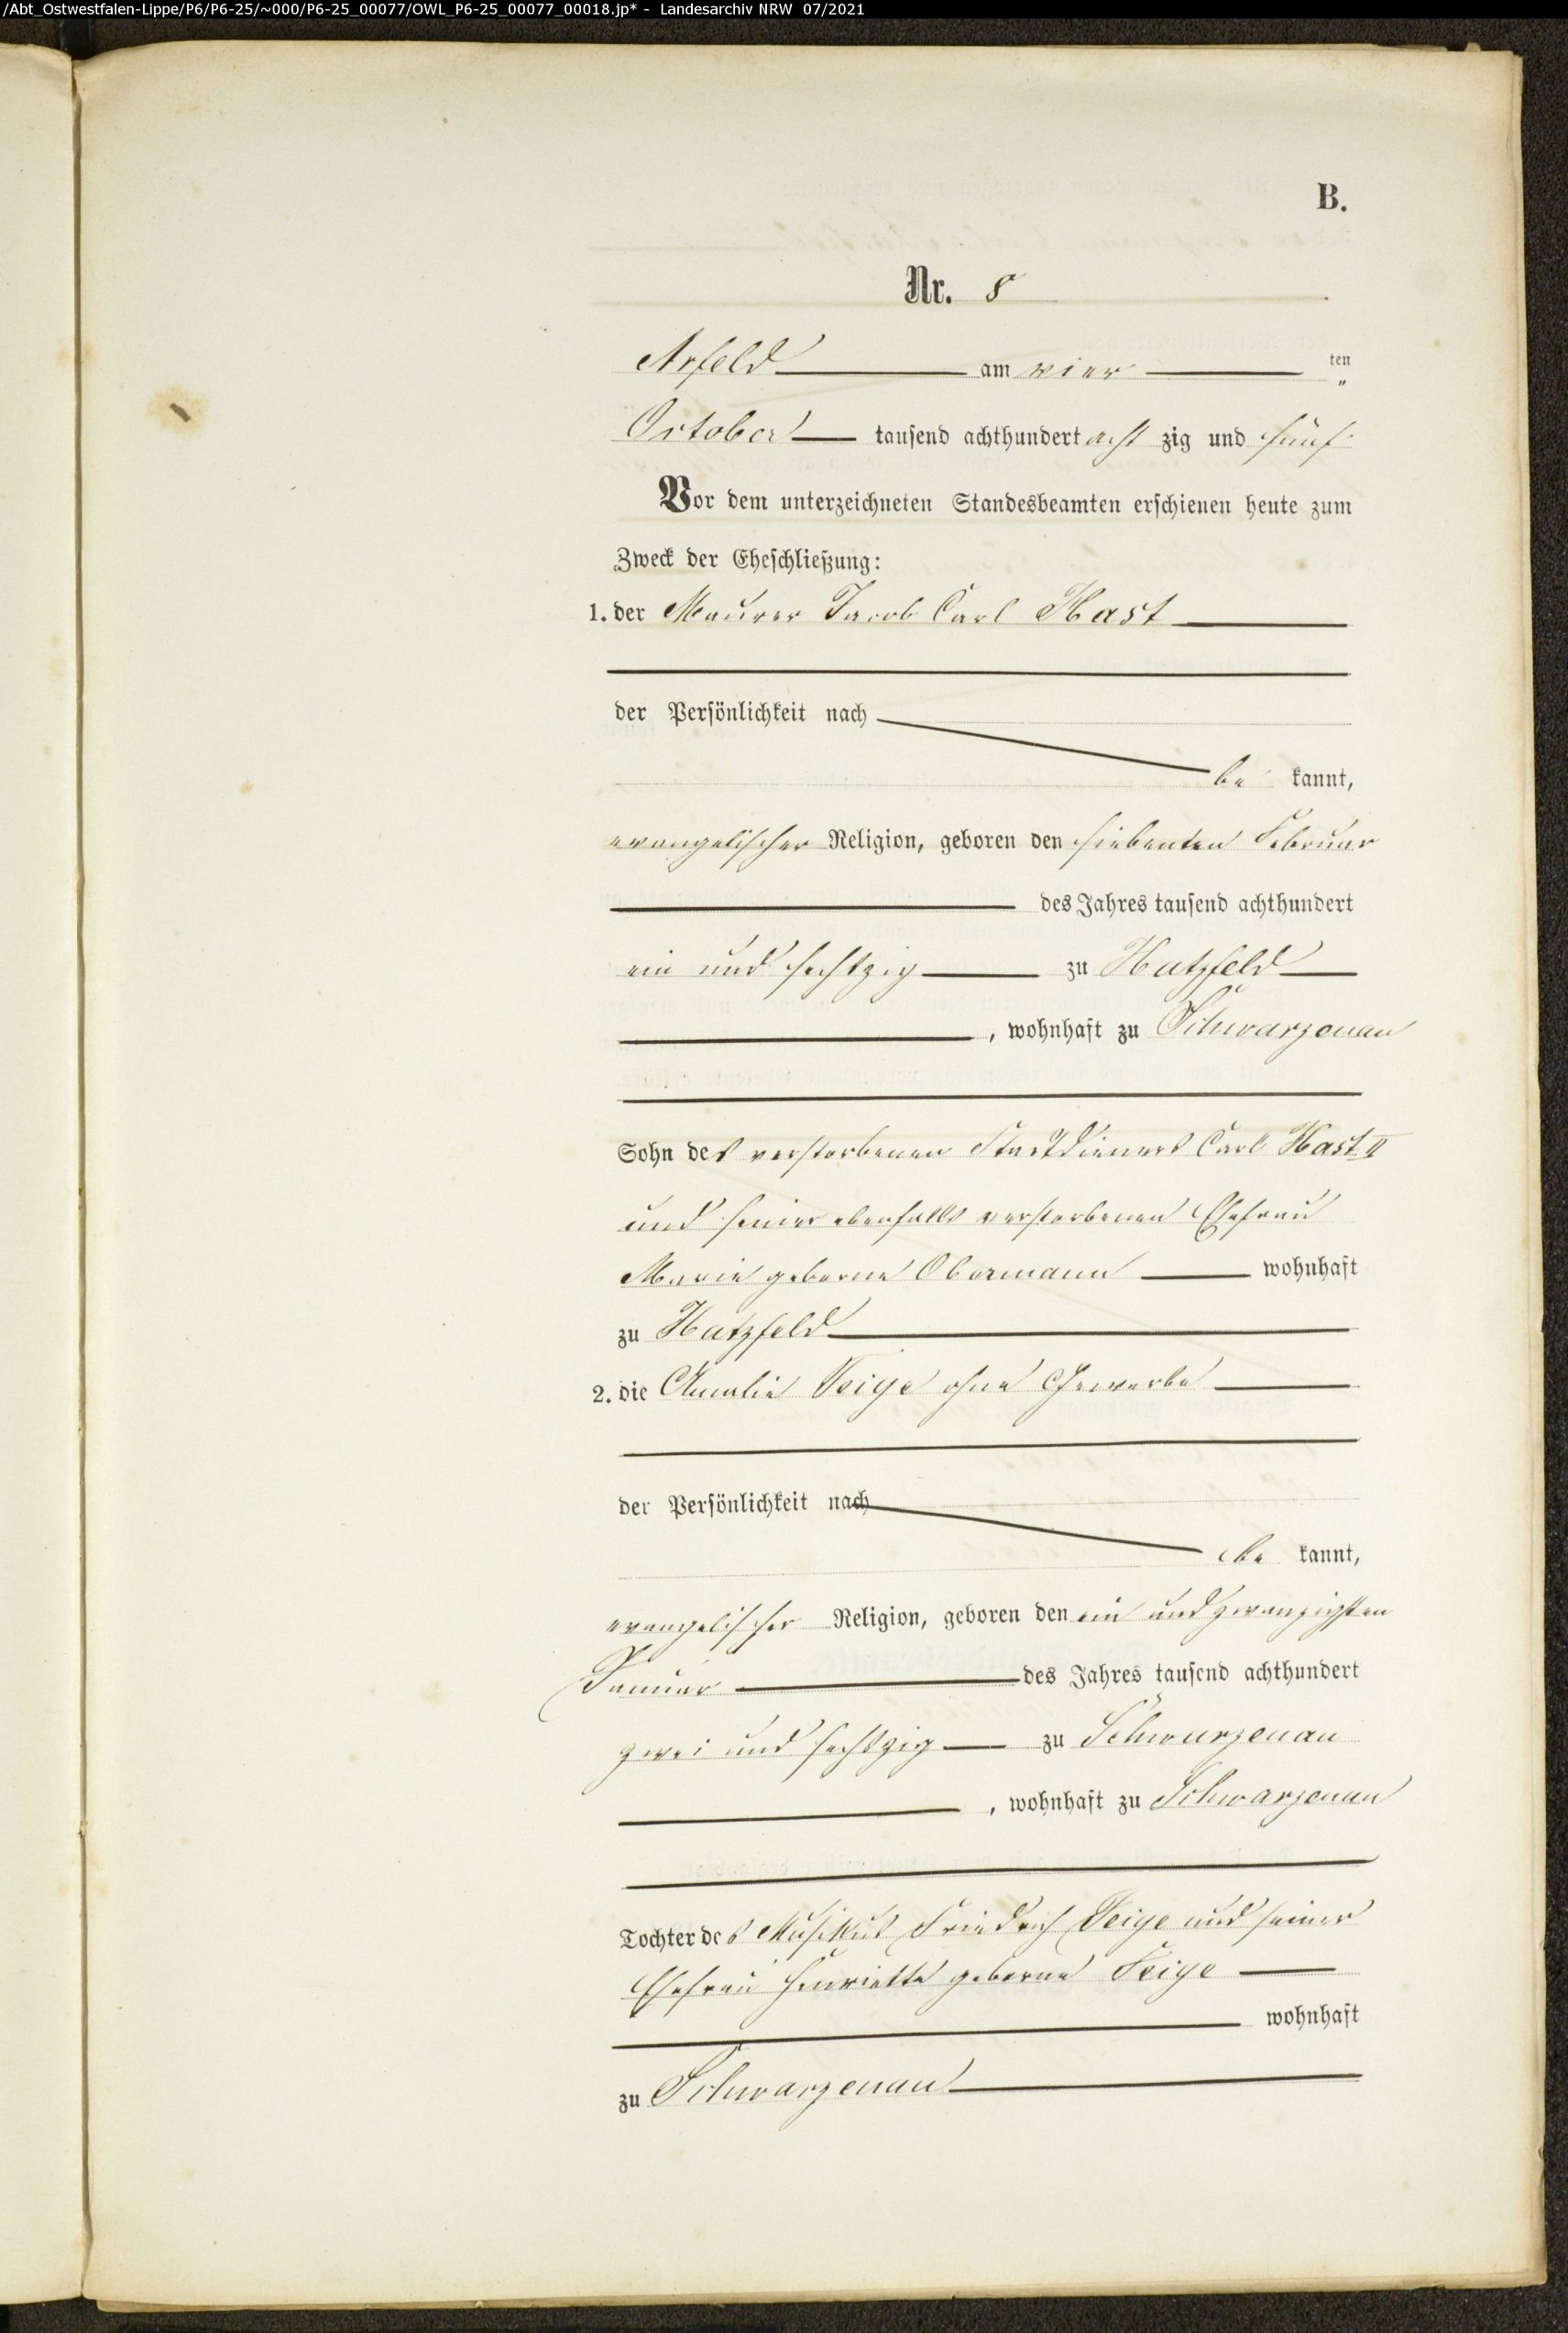 /Abt_Ostwestfalen-Lippe/P6/P6-25/~000/P6-25_00077/OWL_P6-25_00077_00018.jp* - Landesarchiv NRW 07/2021
B.
Nr. 8
Arfeld am vier ten
October tausend achthundert acht zig und fünf
Vor dem unterzeichneten Standesbeamten erschienen heute zum
Zweck der Eheschließung:
1. der Maurer Jacob Carl Hast
der Persönlichkeit nach
be kannt,
evangelischer Religion, geboren den siebenten Februar
des Jahres tausend achthundert
ein und sechszig zu Hatzfeld
, wohnhaft zu Schwarzenau
Sohn des verstorbenen Stadtdieners Carl Hast II
und seiner ebenfalls verstorbenen Ehefrau
Marie geborne Obermann wohnhaft
zu Hatzfeld
2. die Amalie Feige ohne Gewerbe
der Persönlichkeit nach
be kannt,
evangelischer Religion, geboren den ein und zwanzigsten
Januar des Jahres tausend achthundert
zwei und sechszig zu Schwarzenau
, wohnhaft zu Schwarzenau
Tochter des Musikus Friedrich Feige und seiner
Ehefrau Henriette geborne Feige
wohnhaft
zu Schwarzenau